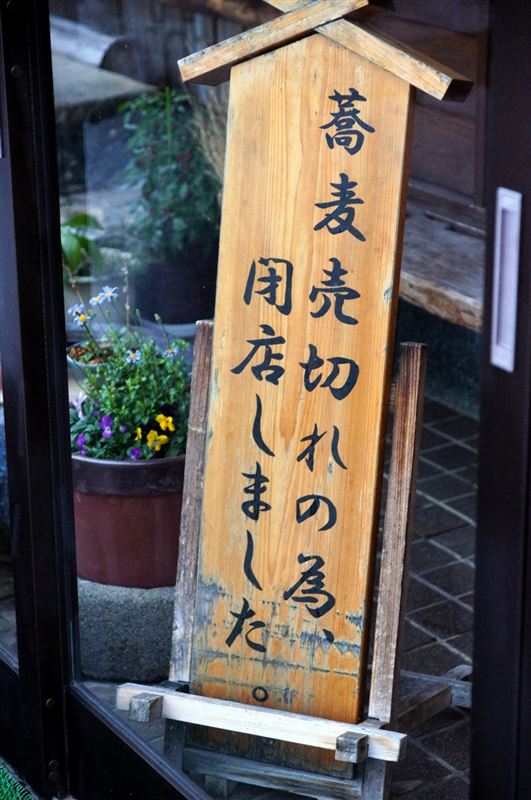 蕎麦売切れの為、
閉店しました。